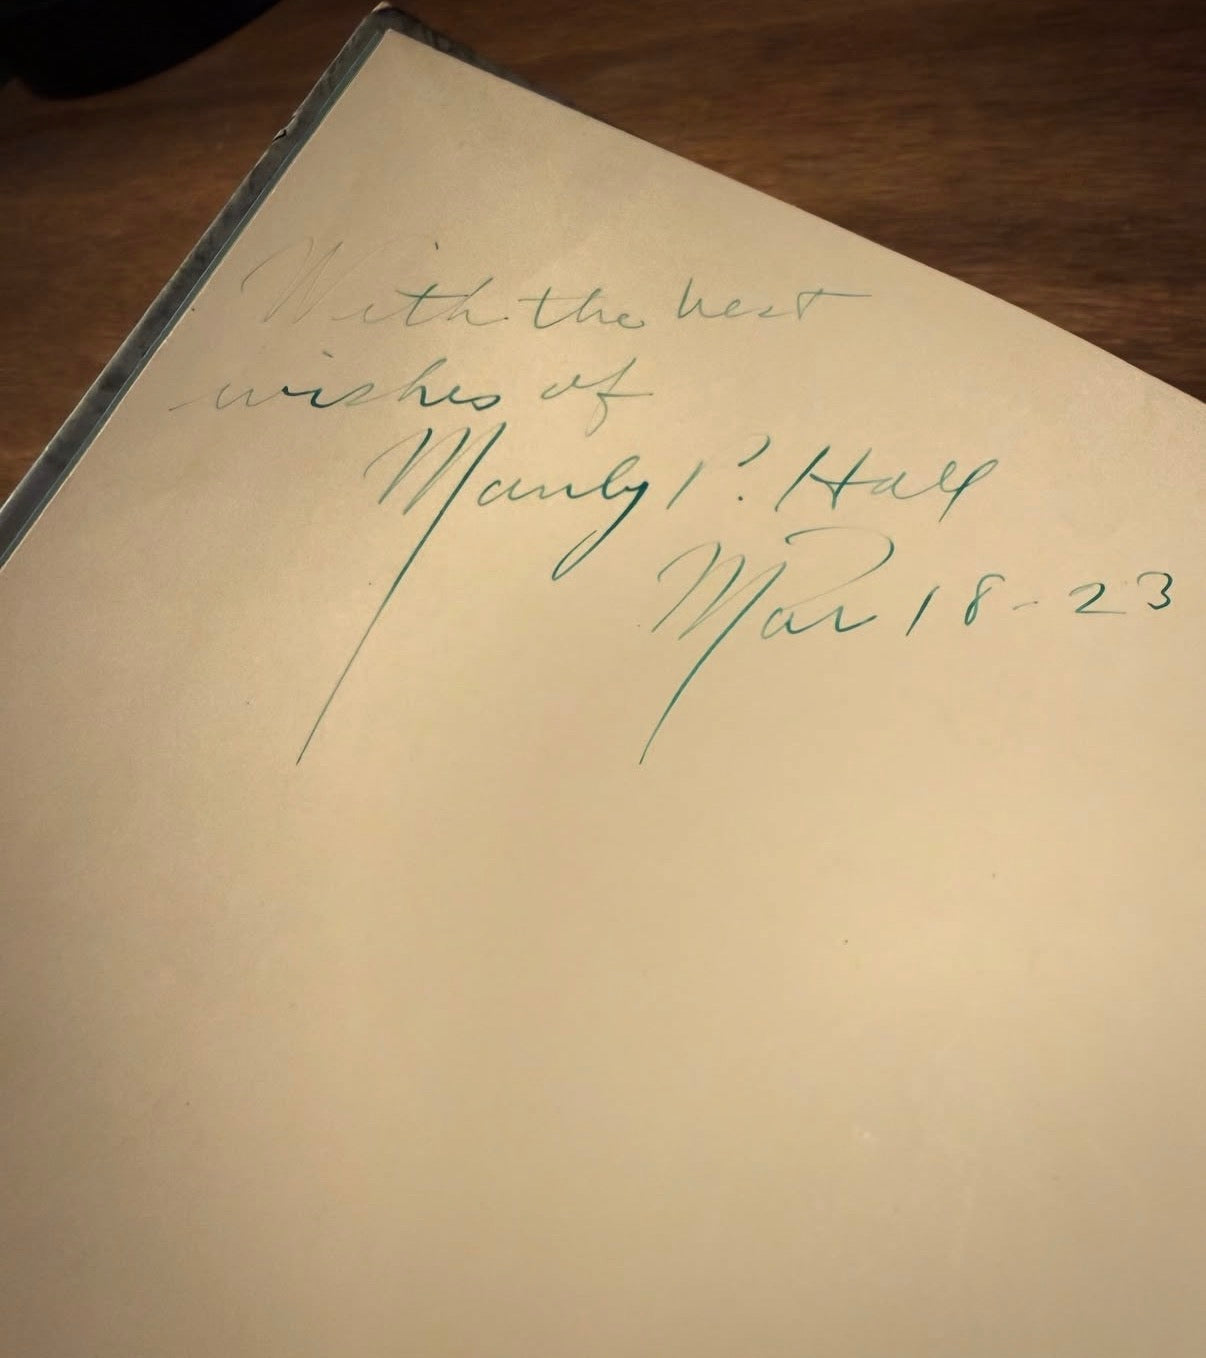 With the best
wishes of
Manly P. Hall
Mar 18-23